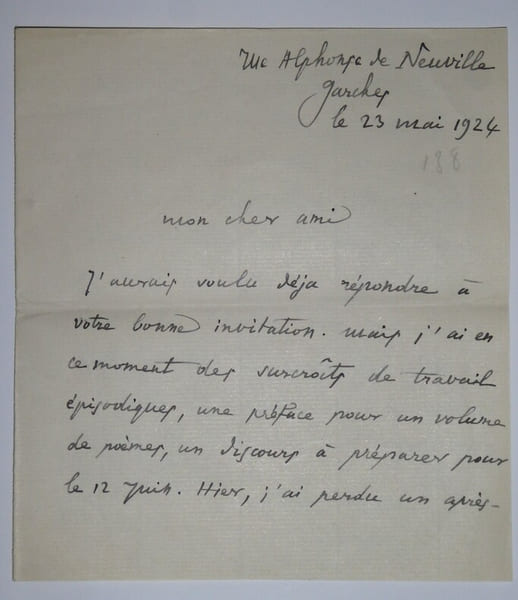 rue Alphonse de Neuville
Garches
le 23 mai 1924
188
mon cher ami
J'aurais voulu déja répondre à
votre bonne invitation. mais j'ai en
ce moment des surcroîts de travail
épisodiques, une préface pour un volume
de poèmes, un discours à préparer pour
le 12 Juin. Hier, j'ai perdu un après-